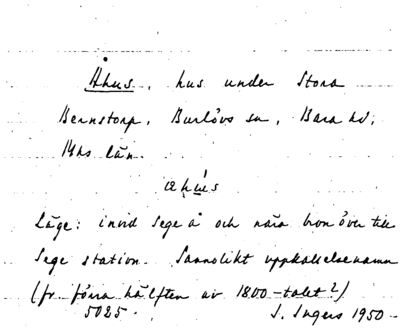 Åhus, hus under Stora
Bernstorp, Burlövs sn, Bara hd,
Mhs län.
æhús
Läge: invid Sege å och nära bron över till
Sege station. Sannolikt uppkallelsenamn
(fr. förra hälften av 1800-talet?)
5025. I. Ingers 1950.